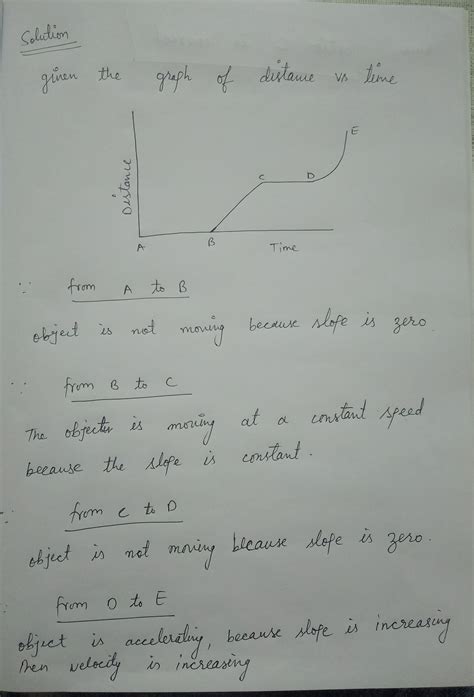 Solution
given the graph of distance vs time
E
C
D
Distance
A
B
Time
∵ from A to B
object is not moving because slope is zero
∵ from B to C
The object is moving at a constant speed
because the slope is constant.
∵ from C to D
object is not moving because slope is zero.
from D to E
object is accelerating, because slope is increasing
then velocity is increasing